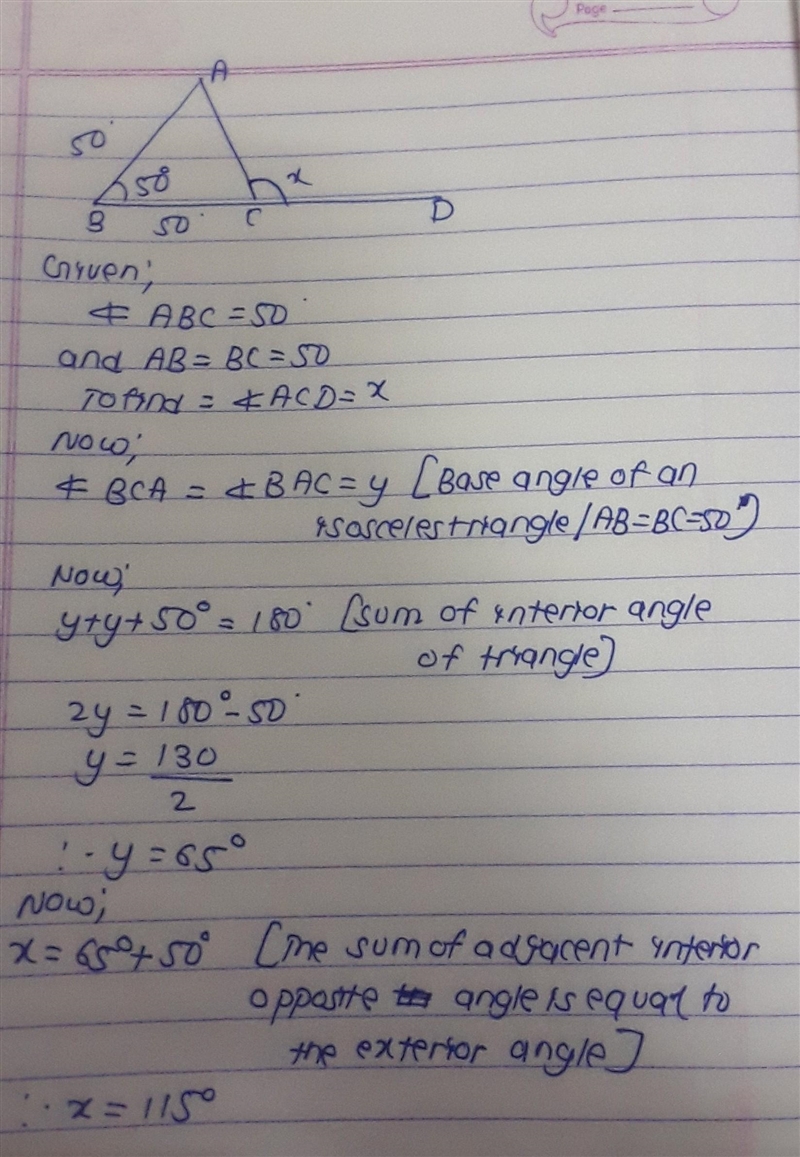 Page
A
50°
50°
x
B
50°
C
D
Given;
∡ ABC = 50°
and AB = BC = 50
To find = ∡ACD = x
Now;
∡ BCA = ∡BAC = y [Base angle of an
isosceles triangle / AB = BC = 50°]
Now;
y+y+50° = 180° [sum of interior angle
of triangle]
2y = 180° - 50°
y = 130
2
∴ y = 65°
Now;
x = 65° + 50° [The sum of adjacent interior
opposite angle is equal to
the exterior angle]
∴ x = 115°